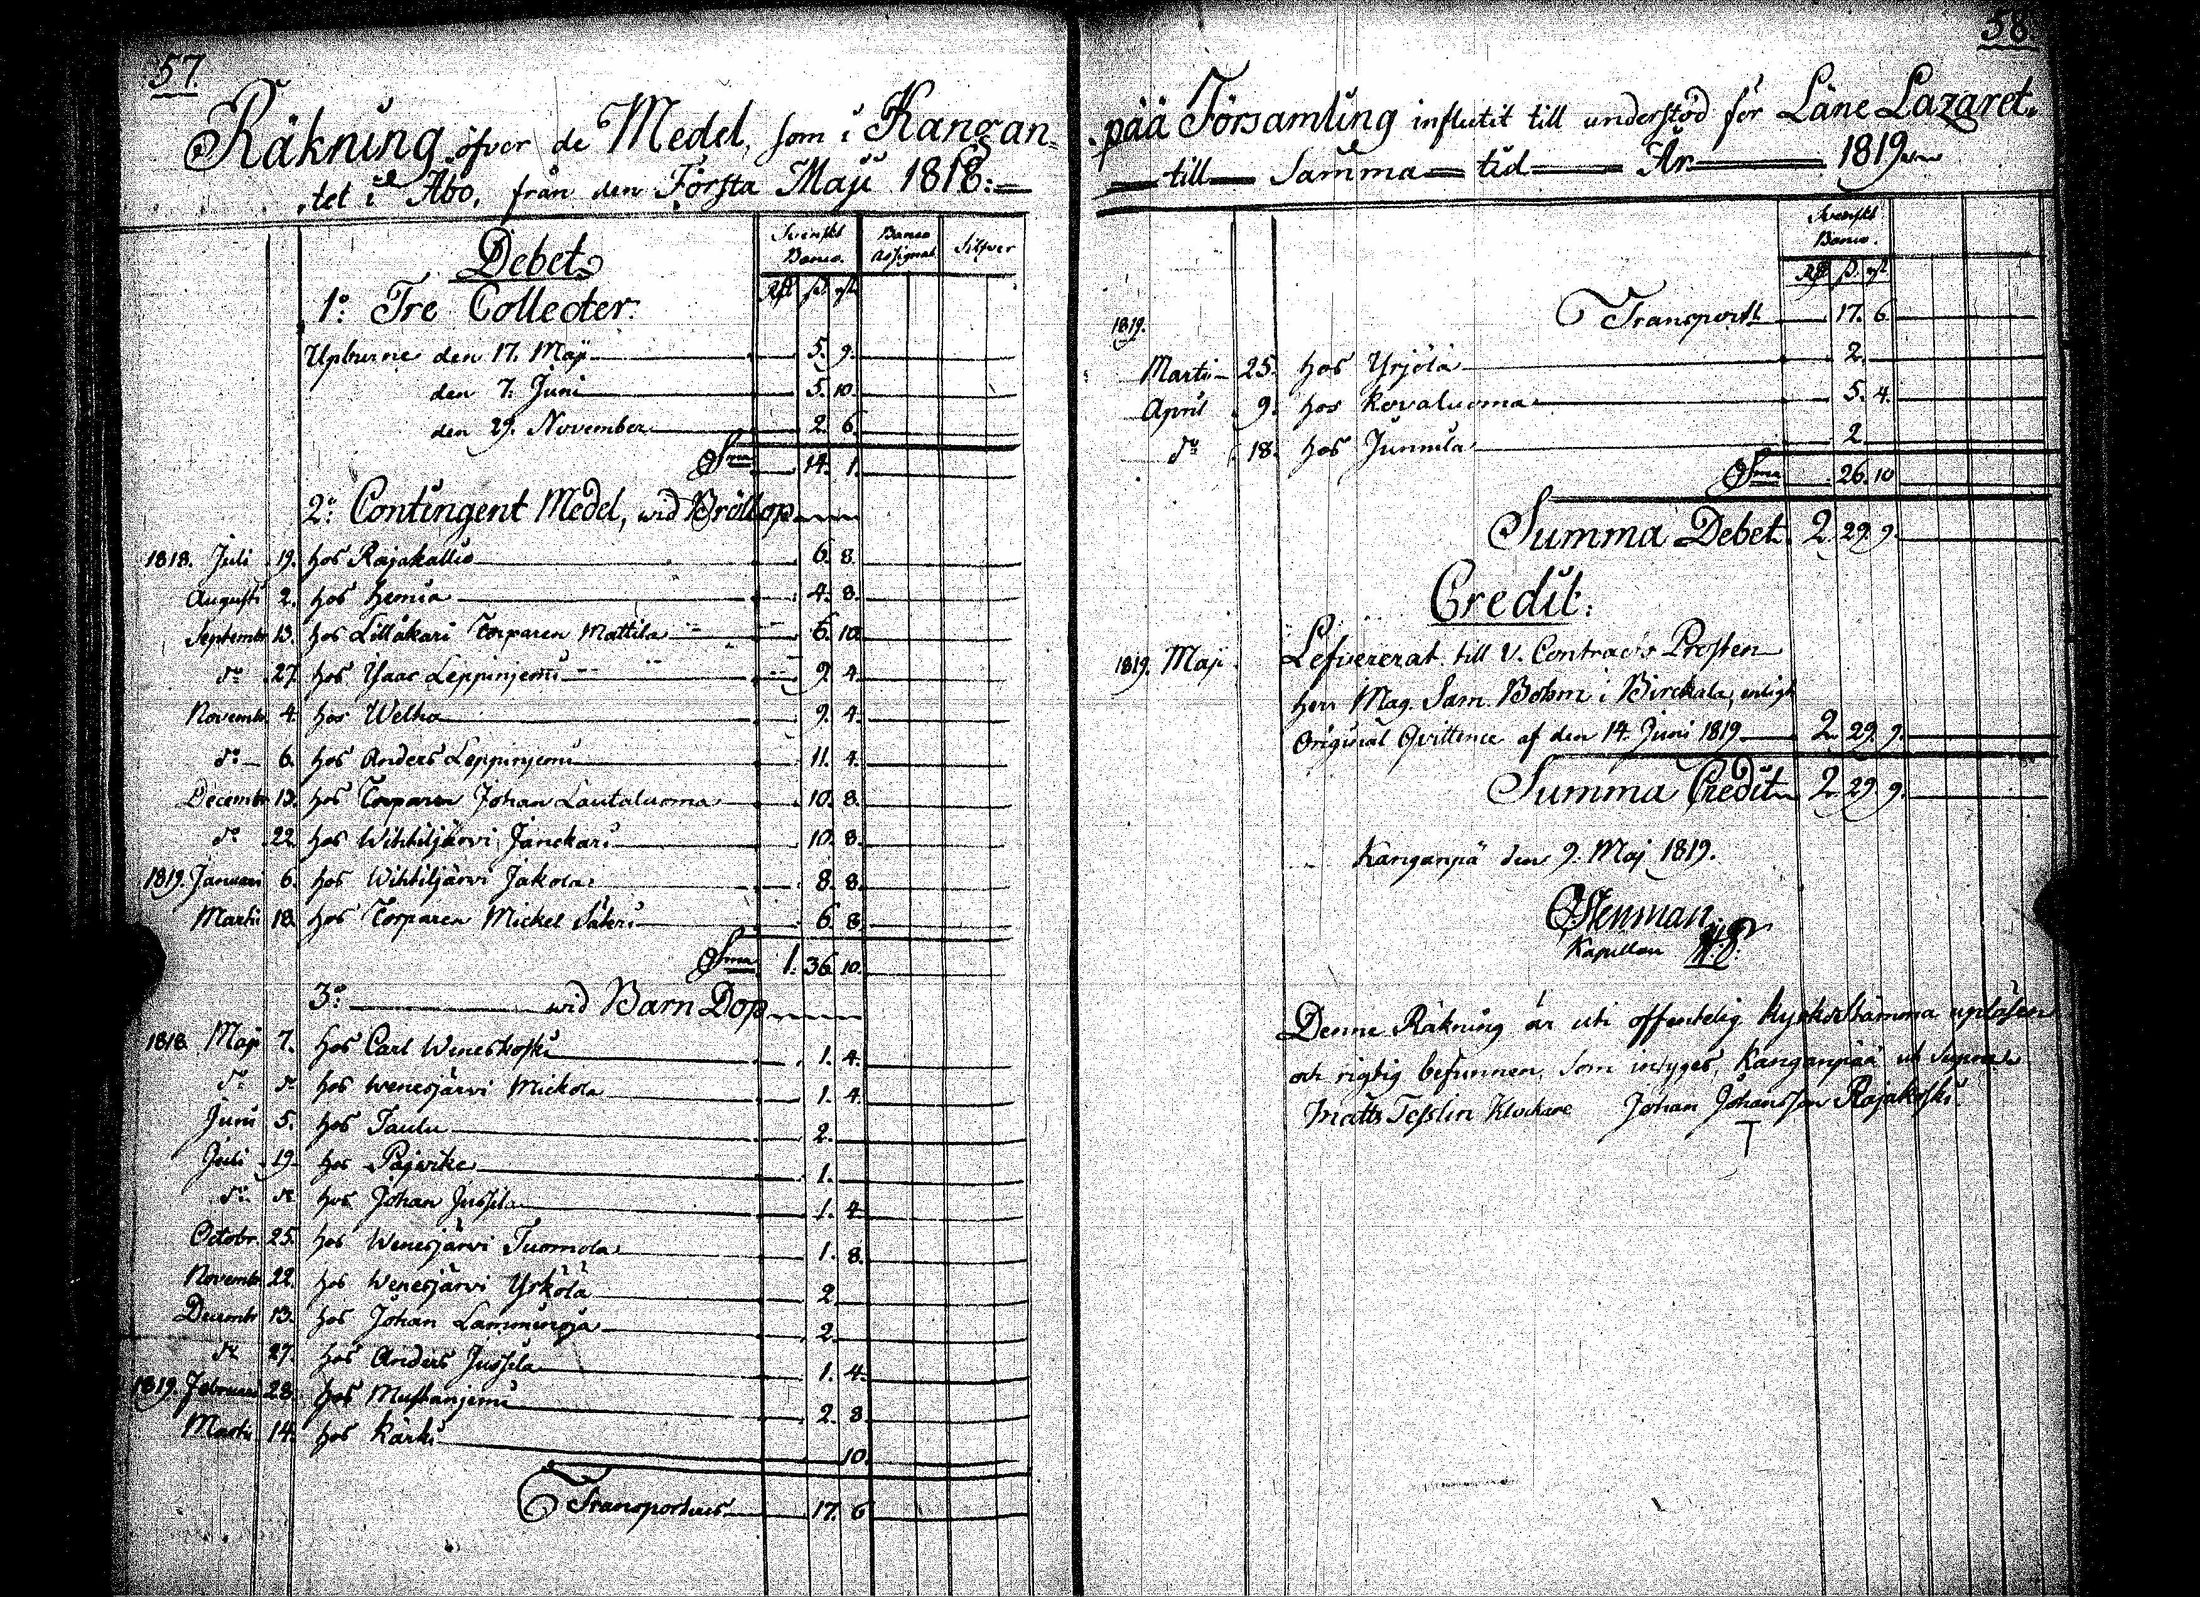 57
Räkning öfver de Medel, som i Kangan=
tet i Åbo, från den Första Maji 1818:
Debet
Svenskt Banco. Banco Assignat. Silfver
1o: Tre Collecter:
Rd sk rst
Upburne den 17. Maji 5. 9.
den 7. Juni 5. 10.
den 29. November 2. 6.
Sma 14. 1.
2o: Contingent Medel, wid Bröllop
1818. Juli 19. hos Rajakallio 6. 8.
Augusti 2. hos Hemia 4. 8.
Septembr 13. hos Lillåkari Torparen Mattila 6. 10.
do 27. hos Ysaac Leppinjemi 9. 4.
Novembr 4. hos Welho 9. 4.
do 6. hos Anders Leppinjemi 11. 4.
Decembr 13. hos Torparen Johan Lautaluoma 10. 8.
do 22. hos Wihtiljärvi Janckari 10. 8.
1819. Januari 6. hos Wihtiljärvi Jakola 8. 8.
Martii 18. hos Torparen Mickel Säkeri 6. 8.
Sma 1. 36. 10.
3o: wid Barn Dop
1818. Maji 7. hos Carl Weneskoski 1. 4.
do do hos Wenesjärvi Mickola 1. 4.
Juni 5. hos Taulu 2.
Juli 19. hos Pajarike 1.
do do hos Johan Jussila 1. 4.
Octobr. 25. hos Wenesjärvi Tuomola 1. 8.
Novembr 22. hos Wenesjärvi Yrkölä 2.
Decembr 13. hos Johan Lamminoja 2.
do 27. hos Anders Jussila 1. 4.
1819. Februari 28. hos Mustanjemi 2. 8.
Martii 14. hos Kärki 10.
Transporteres 17. 6
58
pää Församling influtit till understöd för Läne Lazaret.
till Samma tid År 1819
Svenskt Banco.
Rd s. rst
1819. Transport 17. 6.
Marti 25. hos Yrjölä 2.
April 9. hos Kovaluoma 5. 4.
do 18. hos Junnila 2.
Sma 26. 10
Summa Debet 2. 29. 9.
Credit:
1819. Maji. Lefvererat till V. Contracts Prosten
Herr Mag. Sam. Bohm i Birckala, enligt
Original Qvittence af den 14. Juni 1819 2. 29. 9.
Summa Credit 2. 29. 9.
Kanganpä den 9. Maj 1819.
Stenman
Kapellan
Denne Räkning är uti offentelig Kyrkostämma uplåsen
och rigtig befunnen, som intyges, Kanganpää ut Supra
Matts Tesslin Klockare Johan Johansson Rajakoski